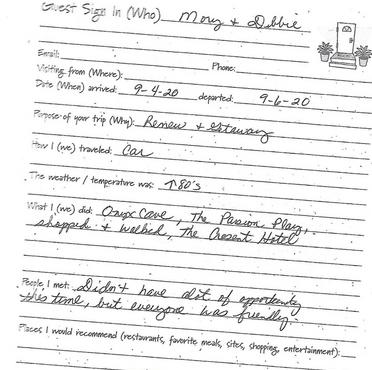 Guest Sign In (Who) Mary & Debbie
Email: Phone:
Visiting from (Where):
Date (When) arrived: 9-4-20 departed: 9-6-20
Purpose of your trip (Why): Renew & Getaway
How I (we) traveled: Car
The weather / temperature was: ↑80's
What I (we) did: Onyx Cave, The Passion Play,
shopped & walked, The Cresent Hotel
People I met: Didn't have alot of opportunity
this time, but everyone was friendly.
Places I would recommend (restaurants, favorite meals, sites, shopping, entertainment):